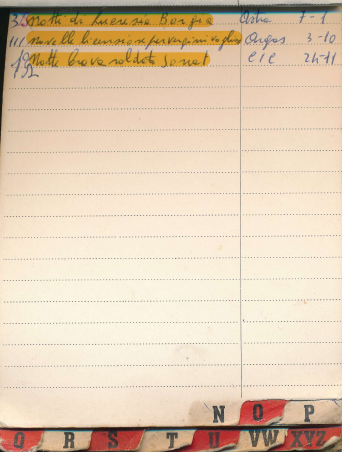 Notti di Lucrezia Borgia Astra 7-1
111 Novelle licenziose per vergini vogliose Argos 3-10
Notte brava soldato Jonat CIC 24-11
N O P
Q R S T U VW XYZ